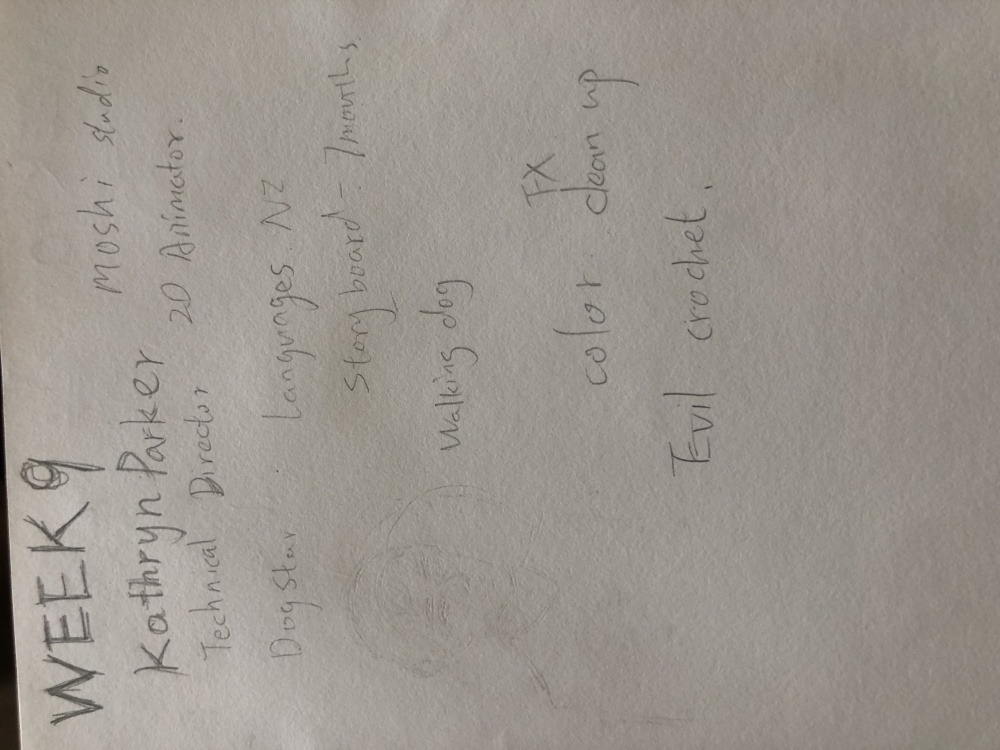 WEEK 9
Kathryn Parker moshi studio
Technical Director 2D Animator.
Dogstar . Languages. NZ
Storyboard - 7 months
Walking dog
FX
color. clean up
Evil crochet.